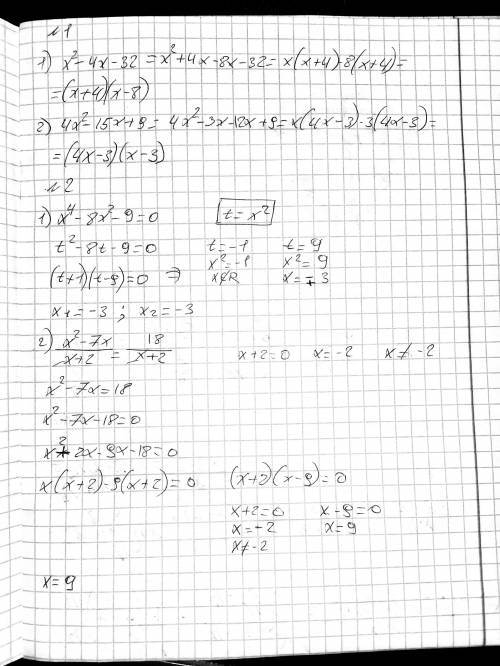 №1
1) x²-4x-32 = x²+4x-8x-32 = x(x+4)-8(x+4)=
=(x+4)(x-8)
2) 4x²-15x+9 = 4x²-3x-12x+9 = x(4x-3)-3(4x-3)=
=(4x-3)(x-3)
№2
1) x⁴-8x²-9=0 t=x²
t²-8t-9=0 t=-1 t=9
(t+1)(t-9)=0 ⇒ x²=-1 x²=9
x∉R x=∓3
x₁=-3 ; x₂=-3
2) (x²-7x)/(x+2) = 18/(x+2) x+2=0 x=-2 x≠-2
x²-7x=18
x²-7x-18=0
x²+2x-9x-18=0
x(x+2)-9(x+2)=0 (x+2)(x-9)=0
x+2=0 x-9=0
x=-2 x=9
x≠-2
x=9